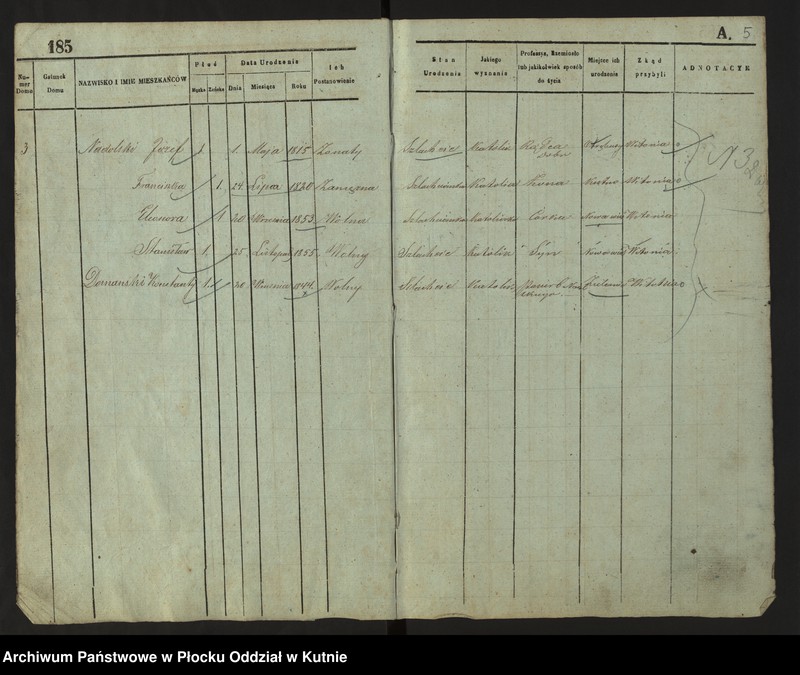 185
A. 5
Numer Domu
Gatunek Domu
NAZWISKO I IMIE MIESZKAŃCÓW
Płeć
Męzka Żeńska
Data Urodzenia
Dnia Miesiąca Roku
Ich Postanowienie
Stan Urodzenia
Jakiego wyznania
Professya, Rzemiosło lub jakikolwiek sposób do życia
Miejsce ich urodzenia
Zkąd przybyli
ADNOTACYE
3 Nadolski Józef 1 1. Maja 1815 Żonaty Szlachcic Katolik Witonia
Franciszka 1. 24 Lipca 1820 Zamężna Szlachcianka Żona Kutno Witonia
Eleonora 1 20 Września 1853 Wolna Szlachcianka Katoliczka Córka Witonia
Stanisław 1. 25 Listopad 1855 Wolny Szlachcic Katolik Syn Witonia
Domański Konstanty 1. 20 Września 1844 Wolny Szlachcic Katolik
Archiwum Państwowe w Płocku Oddział w Kutnie